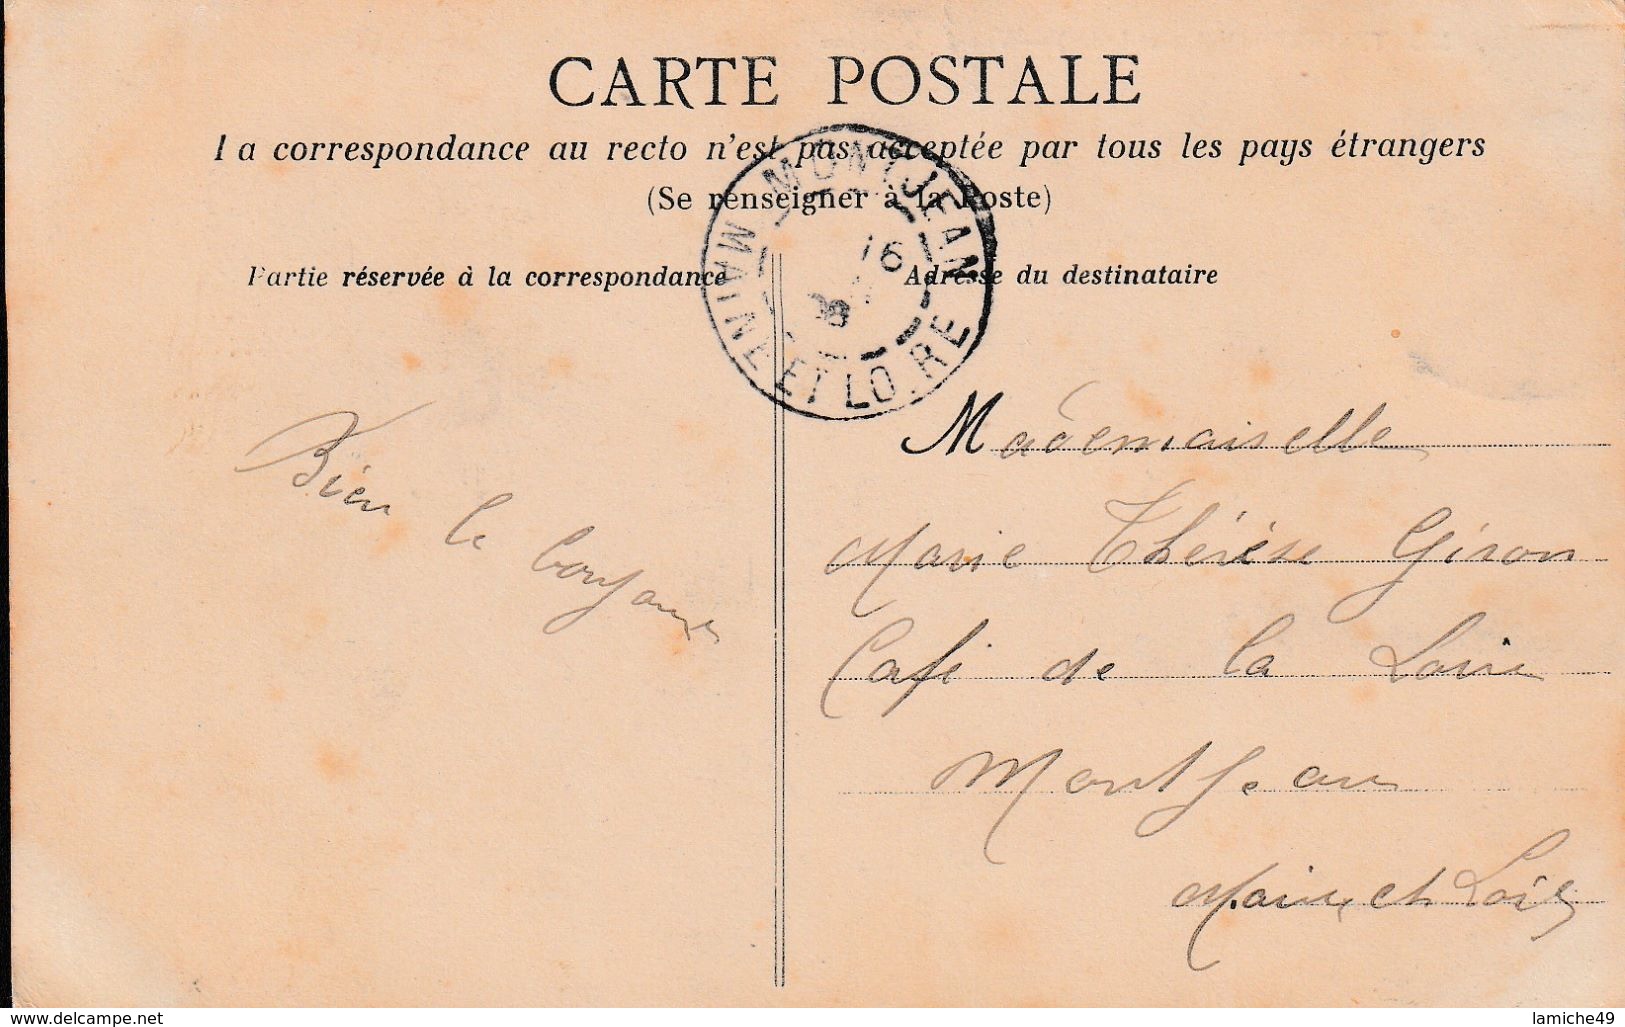 CARTE POSTALE
La correspondance au recto n'est pas acceptée par tous les pays étrangers
(Se renseigner à la Poste)
MONTJEAN
16
08
MAINE ET LOIRE
Partie réservée à la correspondance
Adresse du destinataire
Bien le bonjour
Mademoiselle
Marie Thérèse Giron
Café de la Loire
Montjean
Maine et Loire
www.delcampe.net
lamiche49